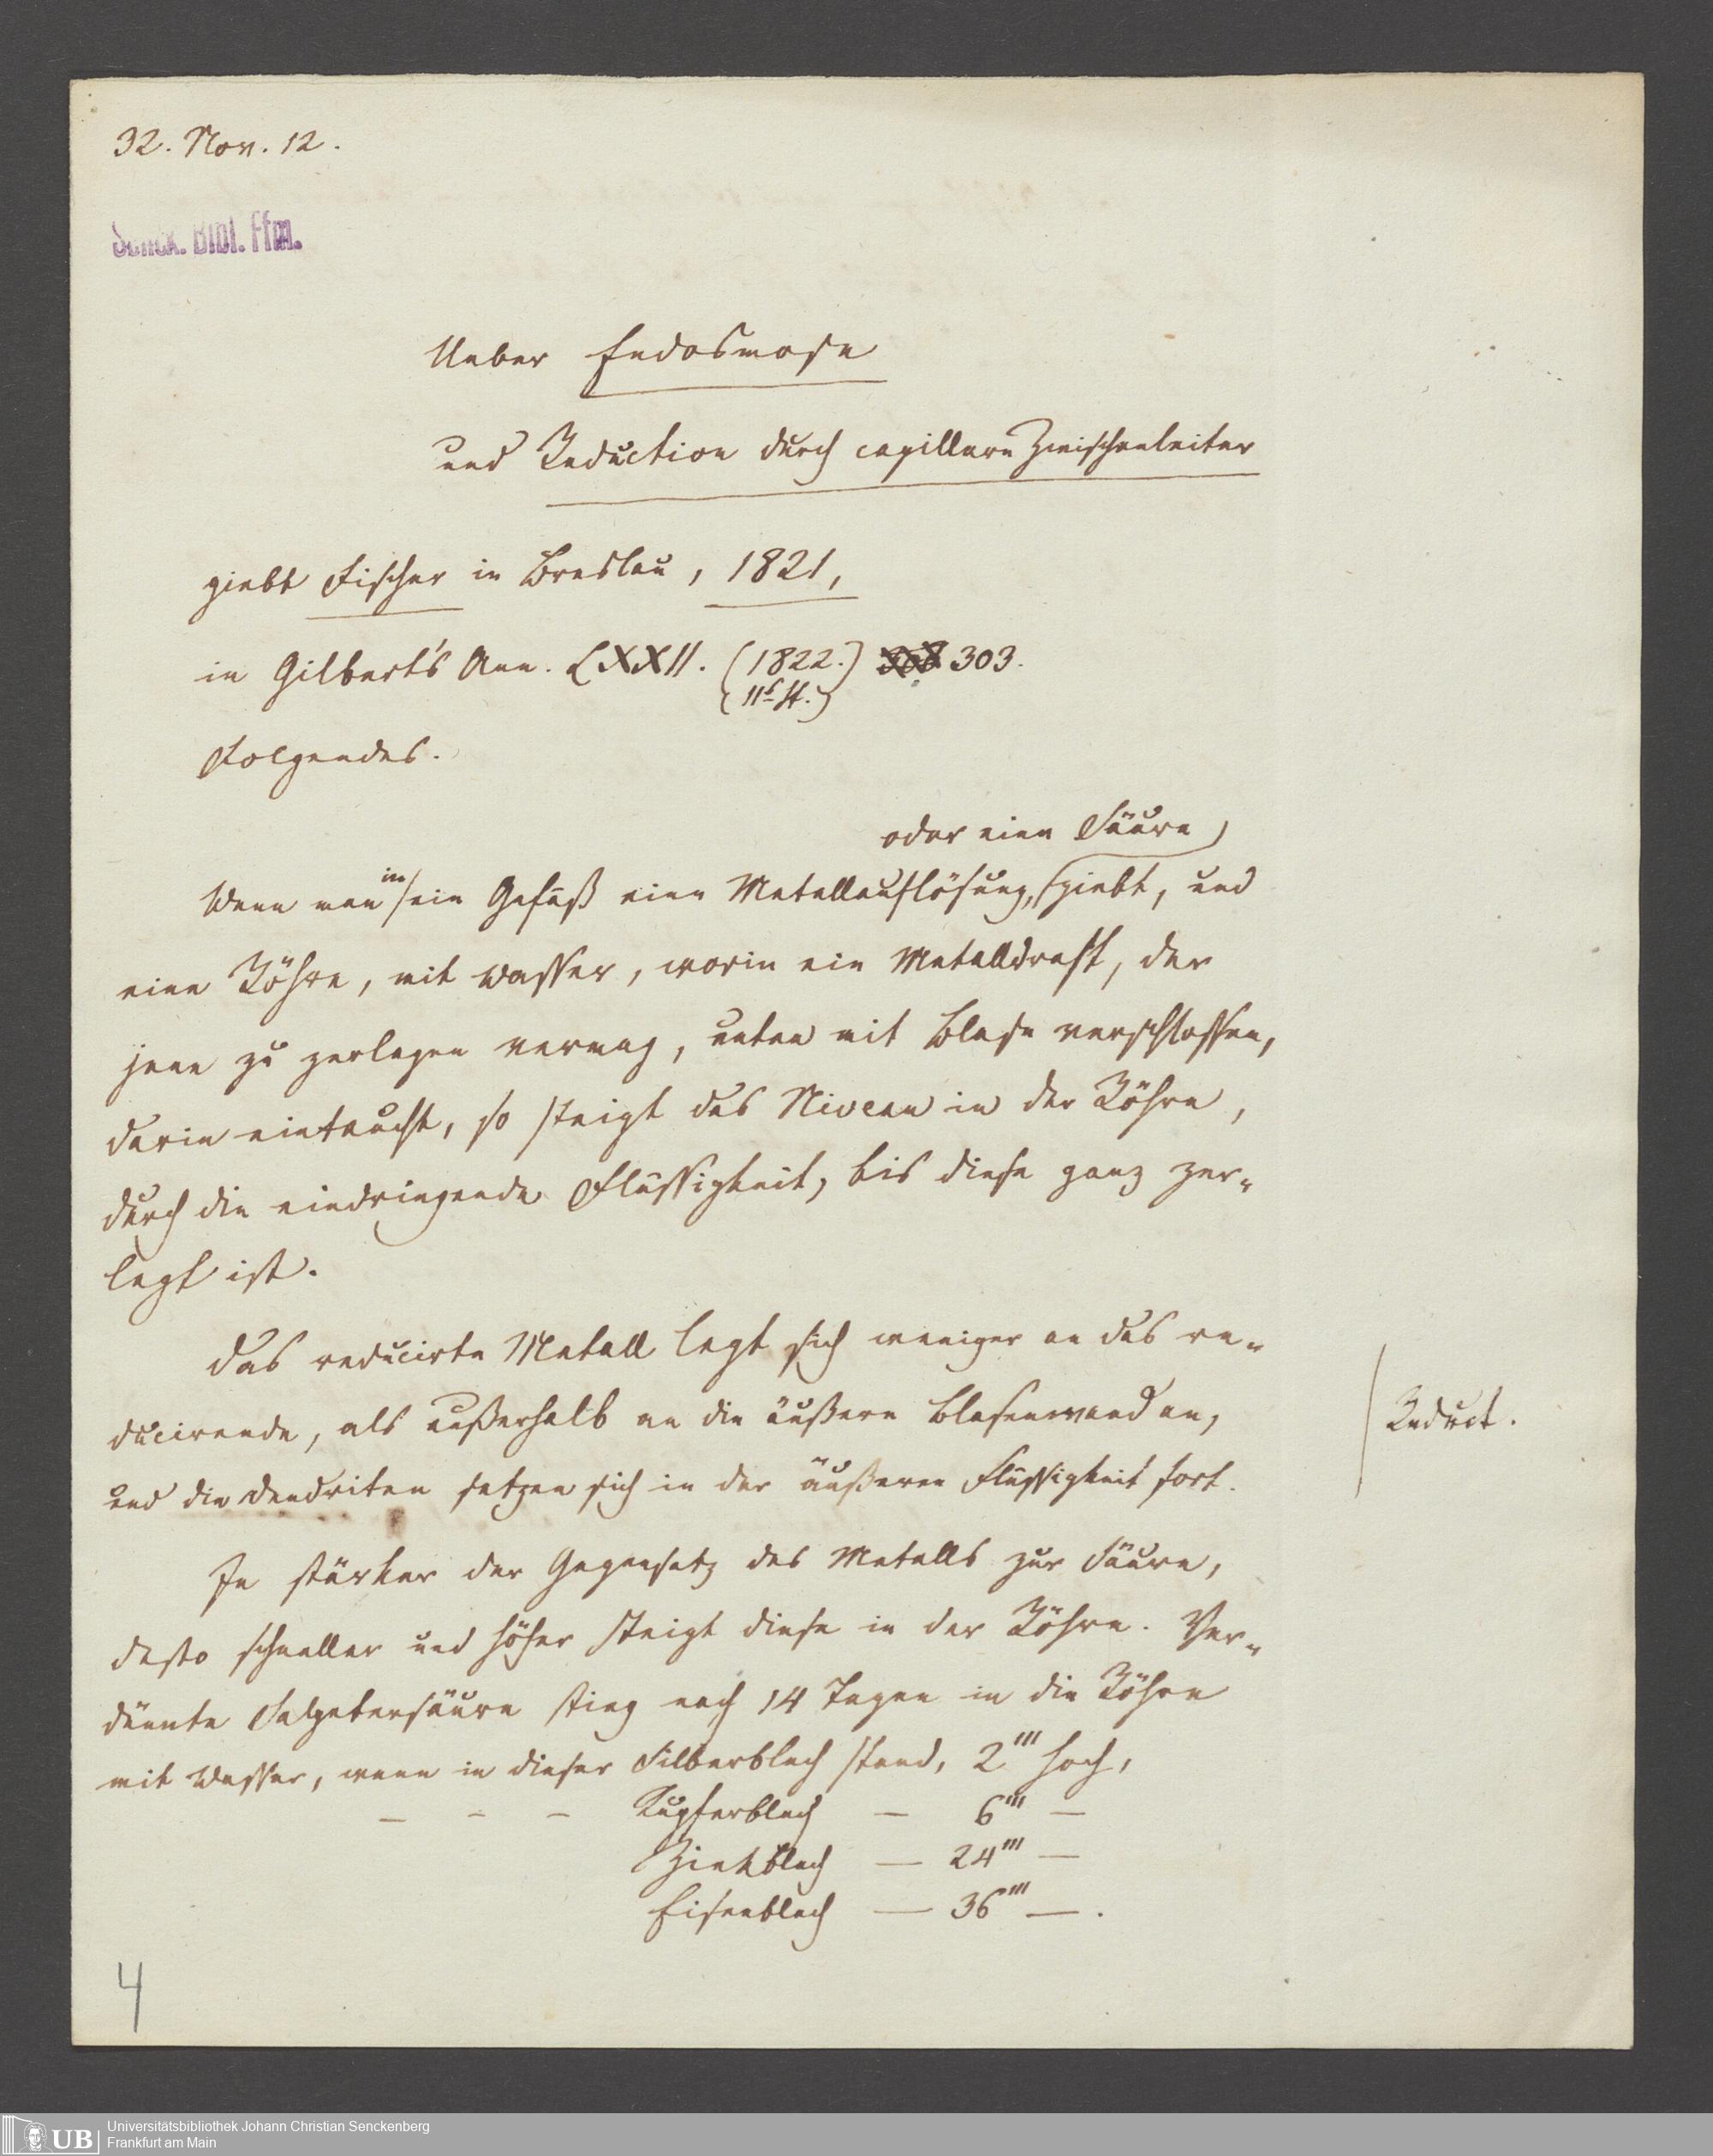 32. Nov. 12.
Senck. Bibl. Ffm.
Ueber Endosmose
und Reduction durch capillare Zwischenleiter
giebt Fischer in Breslau, 1821,
in Gilbert's Ann. LXXII. (1822.) 303.
(11s H.)
Folgendes.
oder eine Säure
Wenn man in ein Gefäß eine Metallauflösung, giebt, und
eine Röhre, mit Wasser, worin ein Metalldraht, der
jene zu zerlegen vermag, unten mit Blase verschlossen,
darin eintaucht, so steigt das Niveau in der Röhre,
durch die eindringende Flüssigkeit, bis diese ganz zer-
legt ist.
Das reducirte Metall legt sich weniger an das re-
ducirende, als außerhalb an die äußere Blasenwand an,
und die Dendriten setzen sich in der äußeren Flüssigkeit fort.
Reduct.
Je stärker der Gegensatz des Metalls zur Säure,
desto schneller und höher steigt diese in der Röhre. Ver-
dünnte Salpetersäure stieg nach 14 Tagen in die Röhre
mit Wasser, wenn in dieser Silberblech stand, 2''' hoch,
— — — Kupferblech — 6''' —
Zinkblech — 24''' —
Eisenblech — 36''' —.
4
UB Universitätsbibliothek Johann Christian Senckenberg
Frankfurt am Main